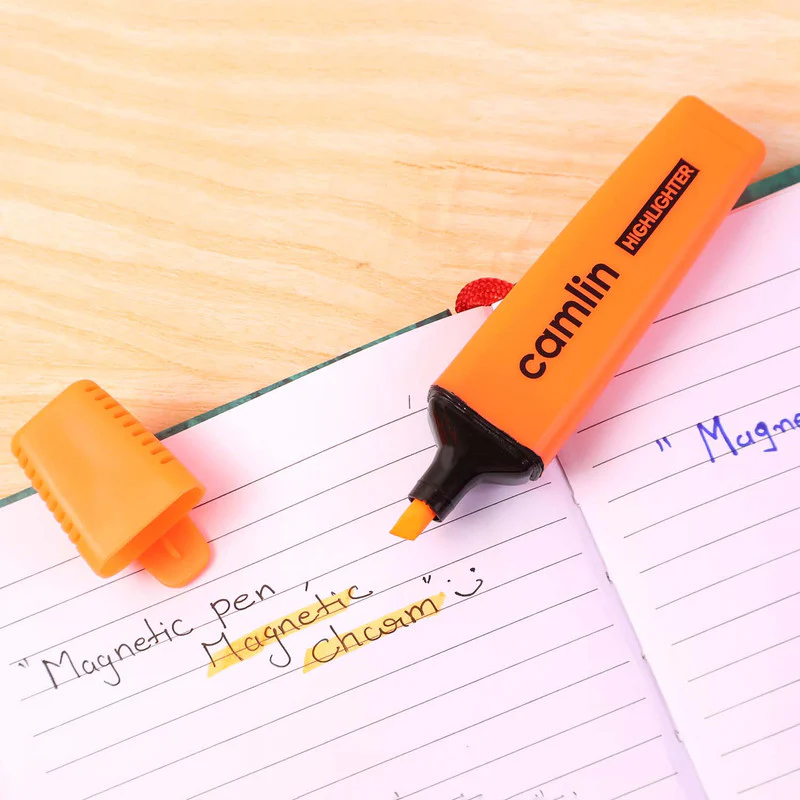 camlin
HIGHLIGHTER
"Magnetic pen,
Magnetic
Charm"
" Magne